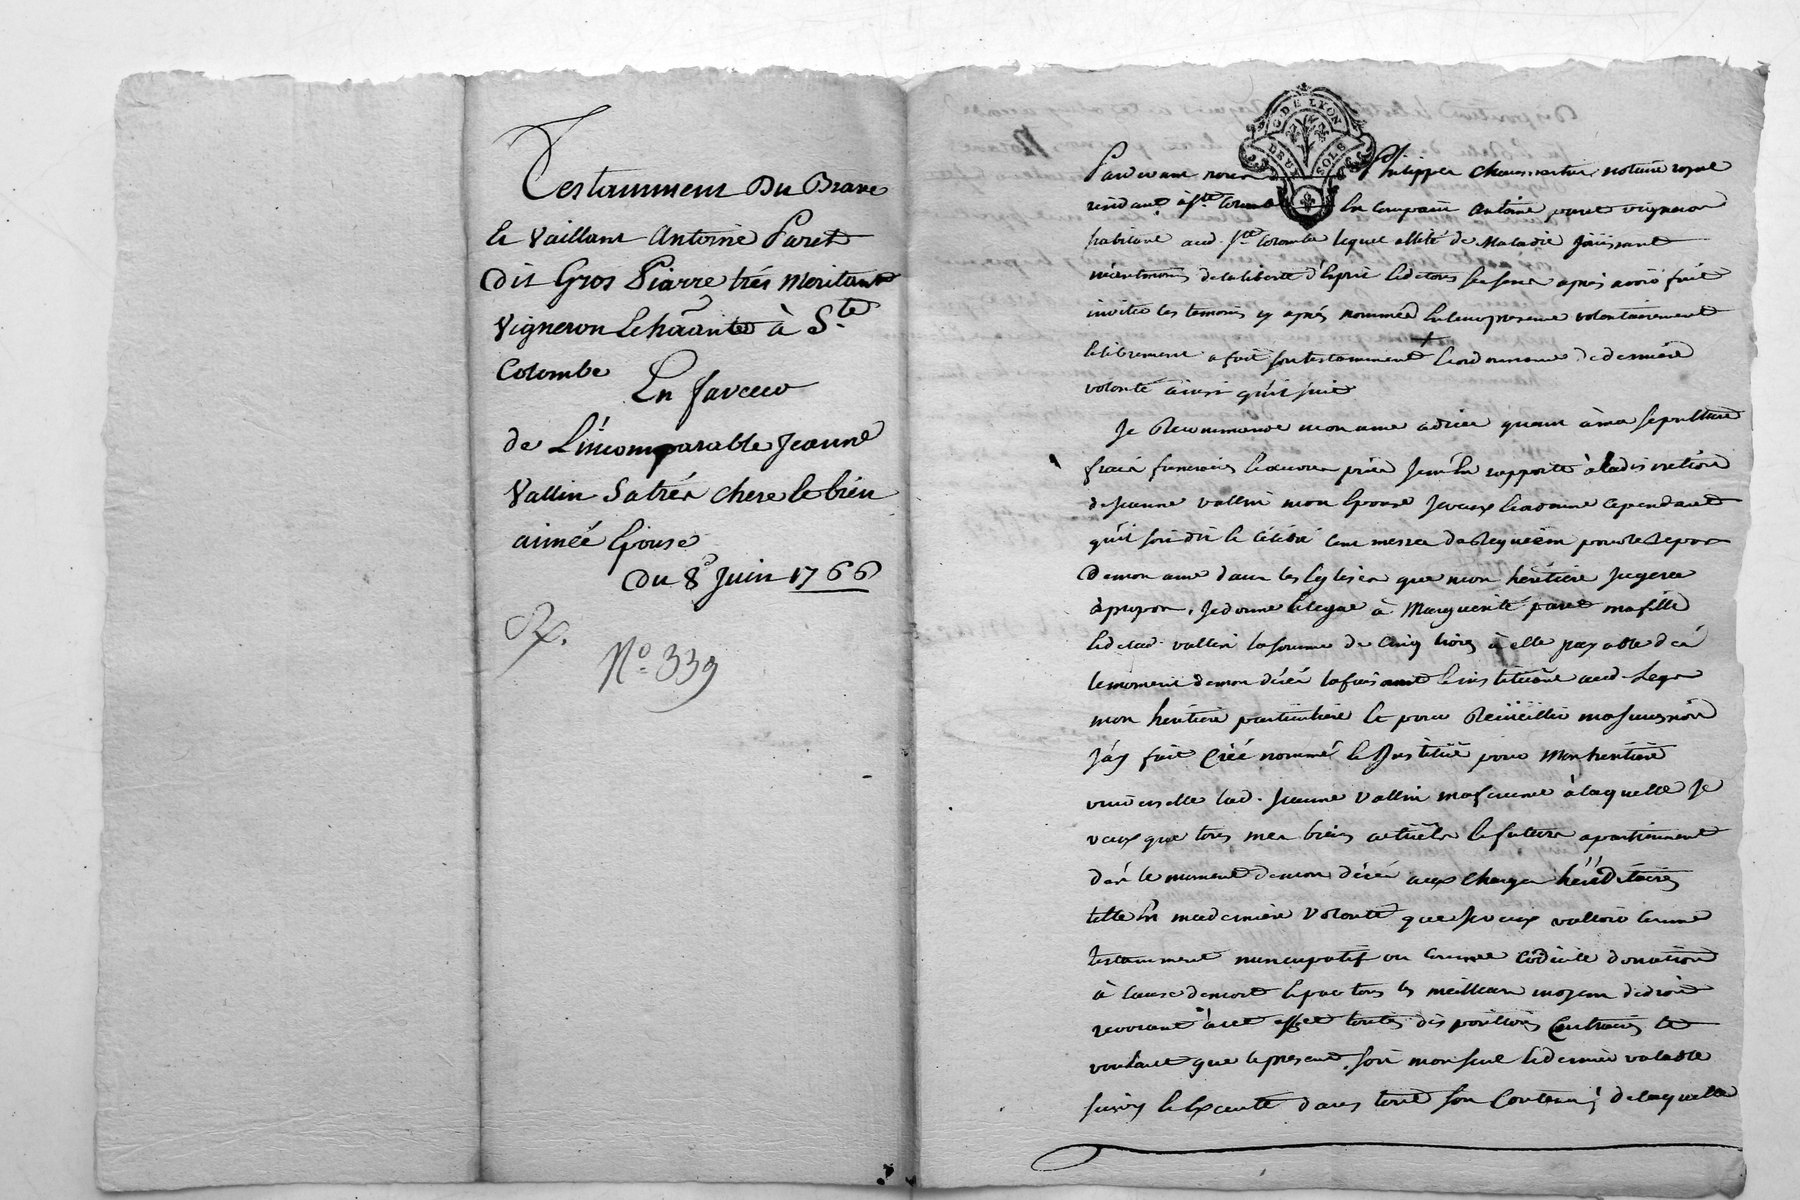 Testamment Du Brave
le Vaillant Antoine Paret
dit Gros Piarre trés Meritant
Vigneron Et ha͠ant à S.te
Colombe
En faveur
de L'incomparable Jeanne
Vallin Sa trés chere et bien
aimée Epouse
du 8e Juin 1766
N.o 339
G. DE LYON
DEUX SOLS
Pardevant nous Philippe notaire royal
residant à Ste Colombe En Compaië Antoine paret vigneron
habitant aud. Ste Colombe lequel allité de Maladie joüissant
neantmoins de la liberté d'esprit Et de tous ses sens après avoir fait
inviter les temoins cy aprés nommés En leur presence volontairement
Et librement a fait son testamment + Et ordonnance de derniere
volonté ainsi qu'il suit
Je Recommande mon ame a dieu quant à ma sepulture
frais funeraires Et aumones Je m'En rapporte à la discretion
de Jeanne vallin mon Epouse Je veux Et cependant
qu'il soit dit Et célébré Cent messes de Requiem pour le repos
De mon ame dans les Eglises que mon heritiere Jugera
à propos, Je donne Et legue à Marguerite paret ma fille
Et de lad. vallin la somme de Cinq livres à elle payable dés
le moment de mon décés la faisant Et instituant aud. Legs
mon heritiere particuliere Et pour Recüeillir ma succession
J'ay fait Créé nommé Et Institüé pour Mon heritiere
universelle lad. Jeanne Vallin ma femme à laquelle Je
veux que tous mes biens actüels Et futurs apartiennent
dés le moment de mon décés aux charges héréditaires
telle Est ma derniere Volonté que Je veux valloir Comme
testamment nuncupatif ou Comme Codicile donation
à Cause de mort Et par tous les meilleurs moyens de droit
revocant à cet effet toutes dispositions Contraires Et
voulant que le present soit mon seul Et dernier valable
suivy Et Executé dans tout son Contenu, de laquelle